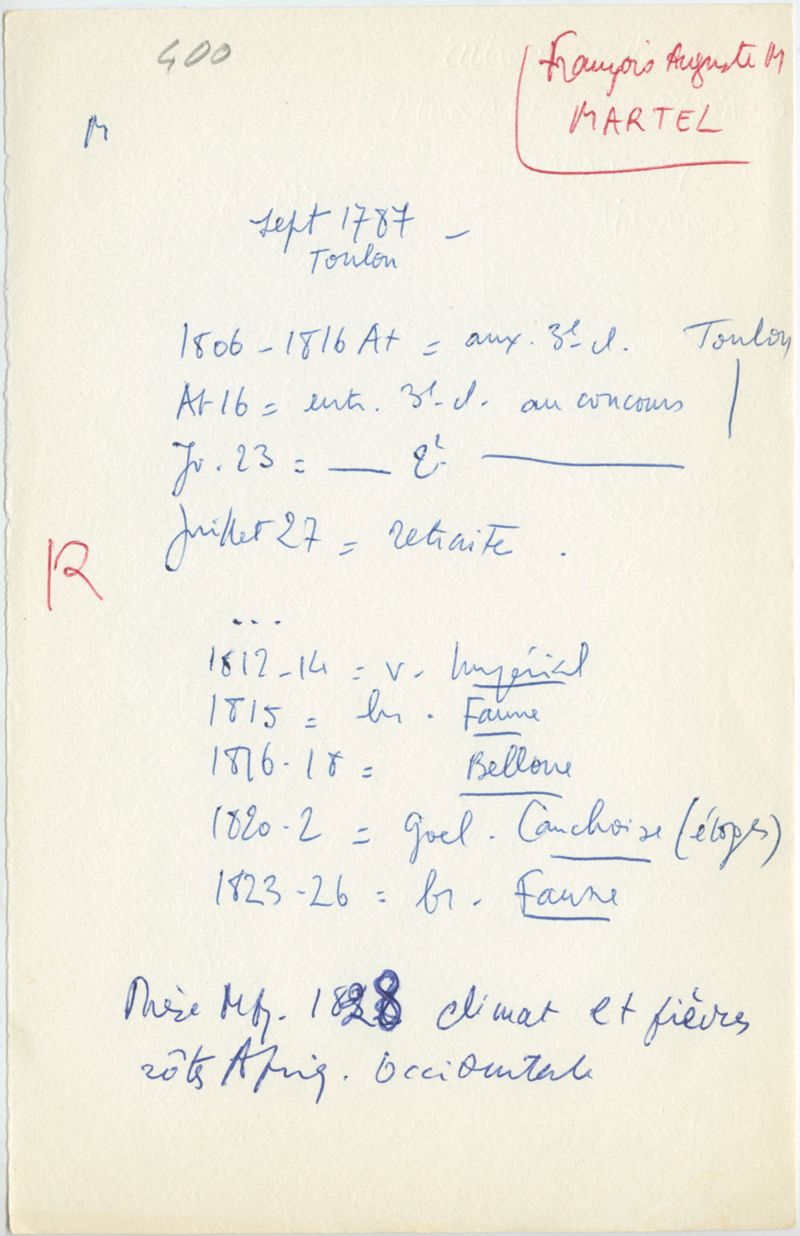 400
François Auguste M
MARTEL
M
Sept 1787 -
Toulon
1806 - 1816 At = aux. 3e cl. Toulon
At 16 = entr. 3e cl. au concours
Jv. 23 = — 2e —
Juillet 27 = retraite .
R
...
1812-14 = v. Impérial
1815 = br. Faune
1816-18 = Bellone
1820-2 = goel. Cauchoise (éloges)
1823-26 = br. Faune
Thèse Mp. 1828 climat et fièvres
côtes Afriq. occidentale